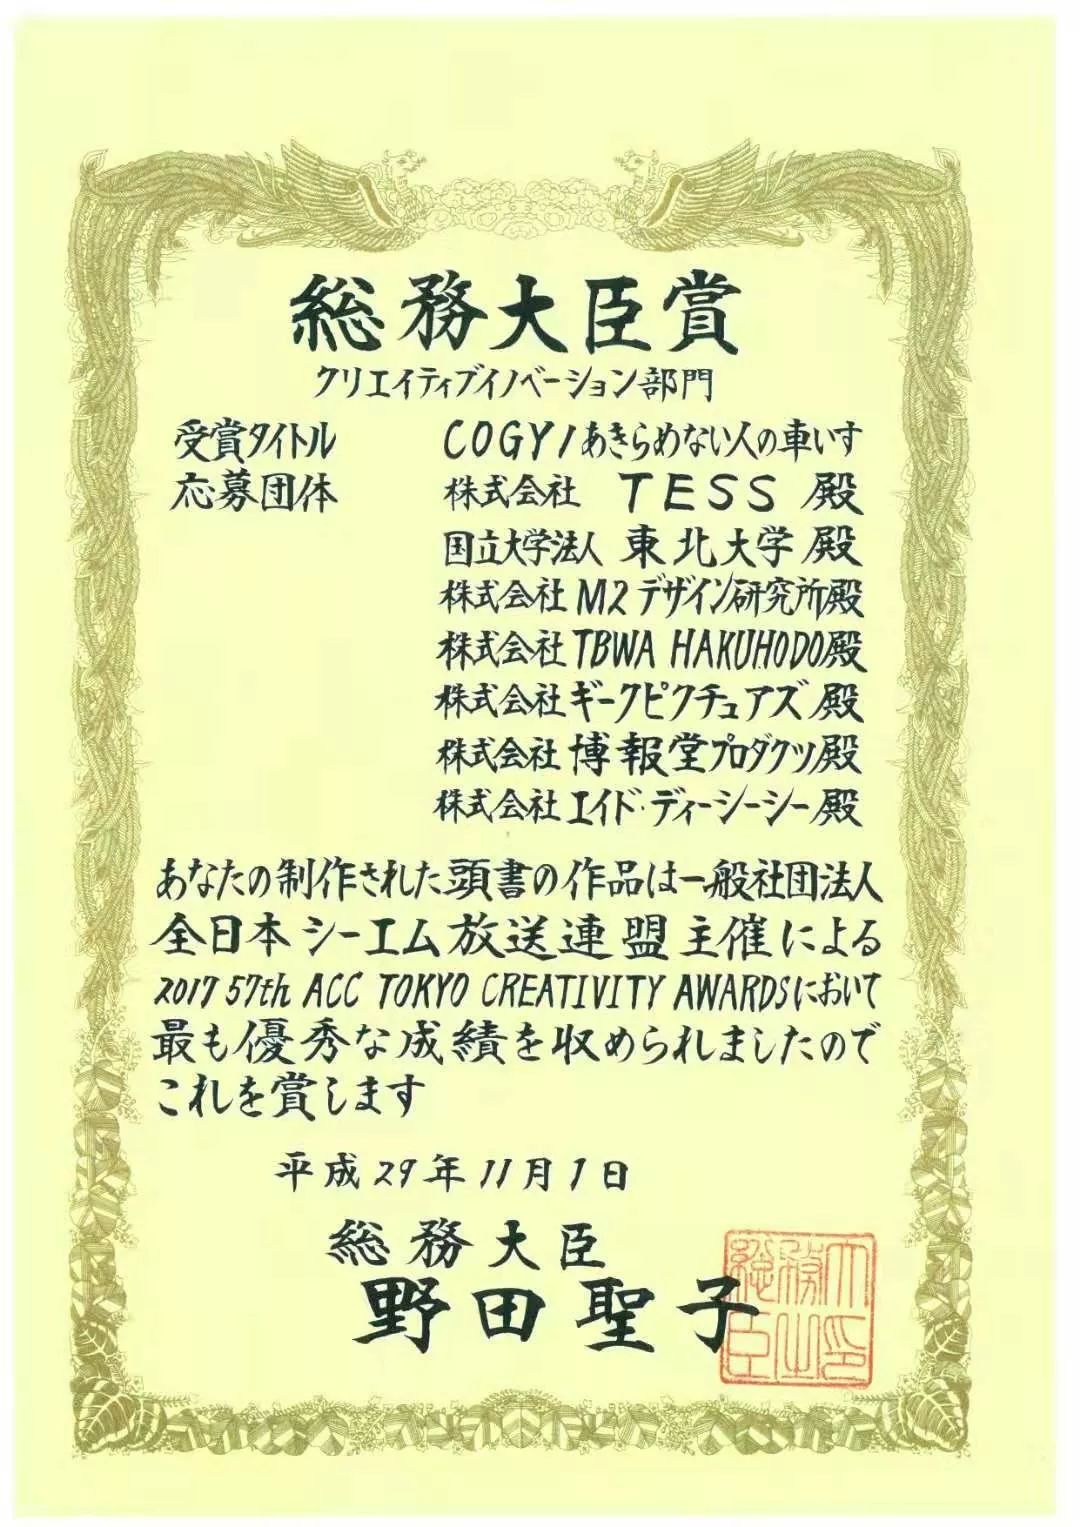 総務大臣賞
クリエイティブイノベーション部門
受賞タイトル COGY/あきらめない人の車いす
応募団体 株式会社 TESS 殿
国立大学法人 東北大学 殿
株式会社 M2デザイン研究所殿
株式会社 TBWA HAKUHODO殿
株式会社 ギークピクチュアズ 殿
株式会社 博報堂プロダクツ殿
株式会社 エイド・ディーシーシー殿
あなたの制作された頭書の作品は一般社団法人
全日本シーエム放送連盟主催による
2017 57th ACC TOKYO CREATIVITY AWARDSにおいて
最も優秀な成績を収められましたので
これを賞します
平成29年11月1日
総務大臣
野田聖子
総務大臣之印